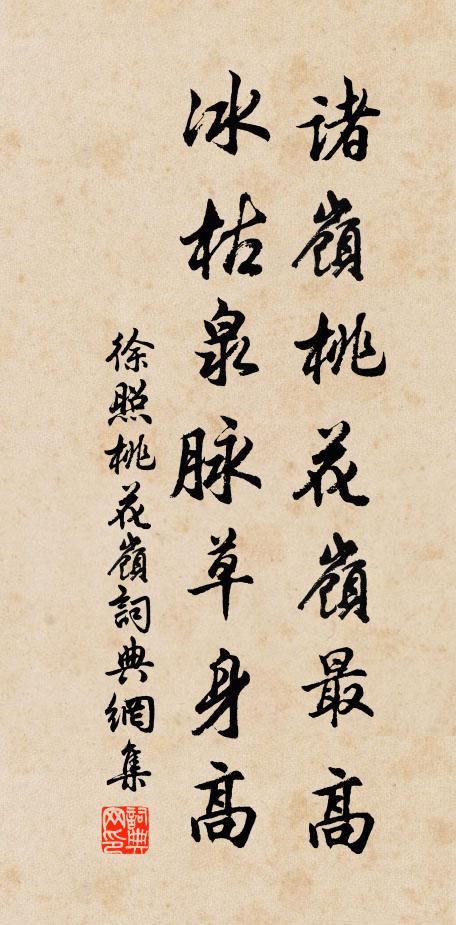 諸嶺桃花嶺最高
冰枯泉脉草身高
徐照桃花嶺詞典網集
詞典網印